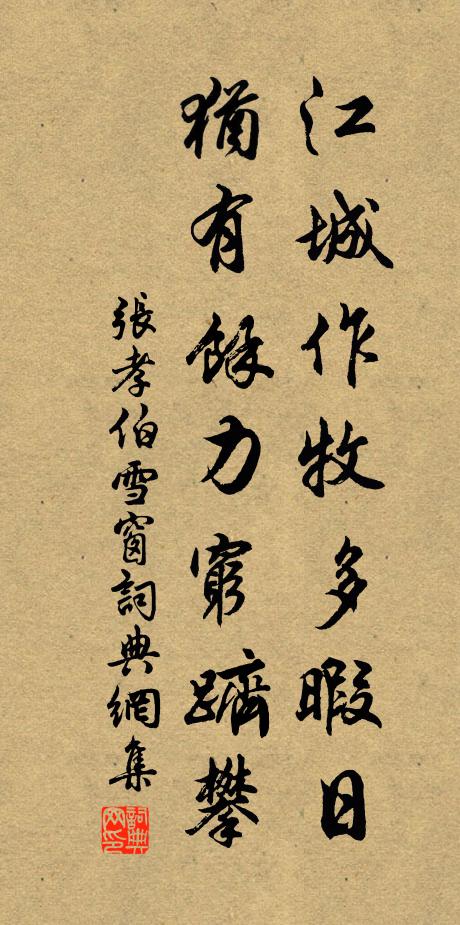 江城作牧多暇日
猶有餘力窮躋攀
張孝伯雪窗詞典網集
詞典网印